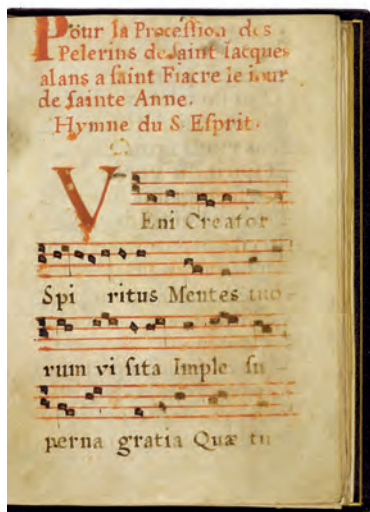 Pour la Procession des
Pelerins de saint Iacques
alans a saint Fiacre le iour
de sainte Anne.
Hymne du S. Esprit.
VEni Creator
Spi ritus Mentes tuo-
rum vi sita Imple su-
perna gratia Quæ tu